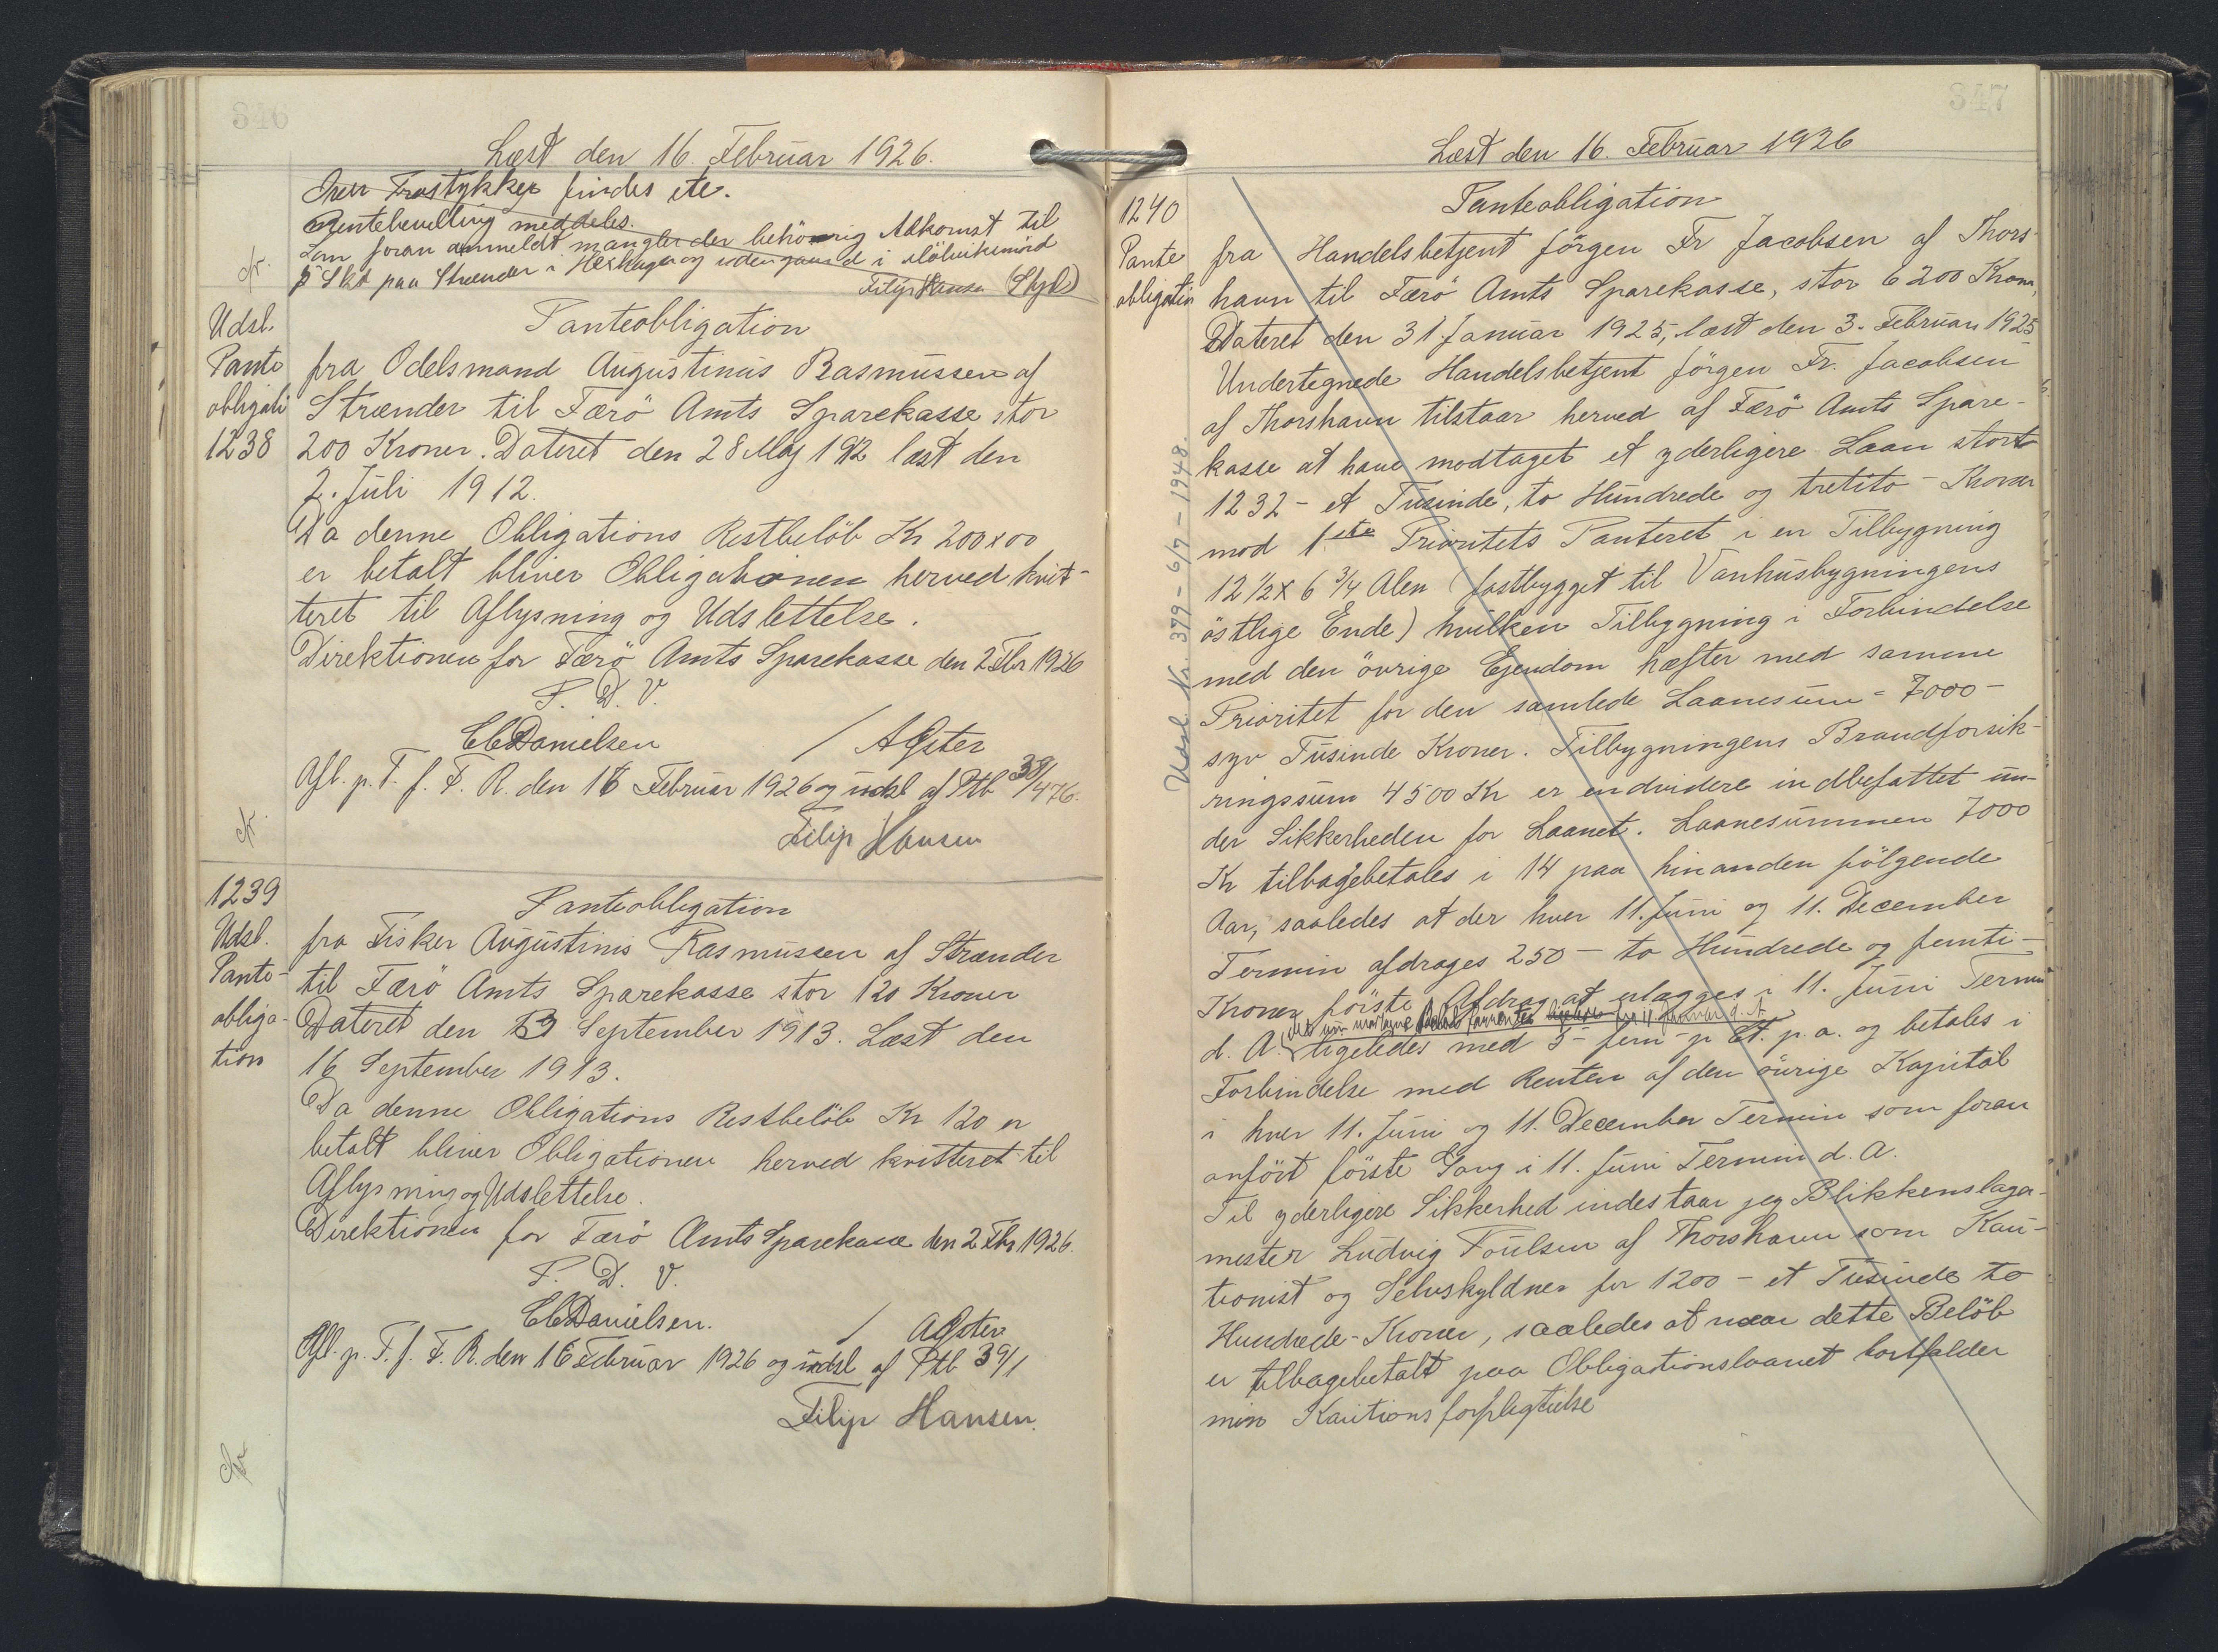 346
Læst den 16. Februar 1926.
findes ite.
Rentebevilling meddeles.
Som foran anmeldt mangler der behörig Adkomst til
Skt paa Strænder i
Filip Hansen
Udsl.
Pante
obligati
1238
Panteobligation
fra Odelsmand Augustinus Rasmussen af
Strænder til Færö Amts Sparekasse stor
200 Kroner. Dateret den 28 Maj 1912 læst den
2. Juli 1912.
Da denne Obligations Restbelöb Kr 200x00
er betalt bliver Obligationen herved kvit-
teret til Aflysning og Udslettelse.
Direktionen for Færö Amts Sparekasse den 2 Fbr 1926
P. D. V.
CCDanielsen / A
Afl. p. T. f. F. R. den 16 Februar 1926 og udsl af Ptb 38/476.
Filip Hansen
1239
Udsl.
Pante-
obliga-
tion
Panteobligation
fra Fisker Augustinus Rasmussen af Strænder
til Færö Amts Sparekasse stor 120 Kroner
Dateret den 13 September 1913. Læst den
16 September 1913.
Da denne Obligations Restbelöb Kr 120 er
betalt bliver Obligationen herved kvitteret til
Aflysning og Udslettelse.
Direktionen for Færö Amts Sparekasse den 2 Fbr 1926.
P. D. V.
CCDanielsen. / A
Afl. p. T. f. F. R. den 16 Februar 1926 og udsl af Ptb 39/1
Filip Hansen.
347
Læst den 16. Februar 1926
1240
Pante
obligation
Udsl. Nr. 379 - 6/7 - 1948.
Panteobligation
fra Handelsbetjent Jörgen Fr Jacobsen af Thors-
havn til Færö Amts Sparekasse, stor 6200 Kroner,
Dateret den 31 Januar 1925, læst den 3. Februar 1925
Undertegnede Handelsbetjent Jörgen Fr. Jacobsen
af Thorshavn tilstaar herved af Færö Amts Spare-
kasse at have modtaget et yderligere Laan stort
1232 - et Tusinde, to Hundrede og tretito - Kroner
mod 1ste Prioritets Panteret i en Tilbygning
12 1/2 x 6 3/4 Alen (fastbygget til Vaanhusbygningens
östlige Ende) hvilken Tilbygning i Forbindelse
med den övrige Ejendom hæfter med samme
Prioritet for den samlede Laanesum = 7000 -
syv Tusinde Kroner. Tilbygningens Brandforsik-
ringssum 4500 Kr er endvidere indbefattet un-
der Sikkerheden for Laanet. Laanesummen 7000
Kr tilbagebetales i 14 paa hinanden fölgende
Aar, saaledes at der hver 11. Juni og 11. December
Termin afdrages 250 - to Hundrede og femti -
Kroner förste Afdrag at erlægges i 11. Juni Termin
fra 11. Januar
d. A. ligeledes med 5 - fem - p Ct. p. a. og betales i
Forbindelse med Renten af den övrige Kapital
i hver 11. Juni og 11. December Termin som foran
anfört förste Gang i 11. Juni Termin d. A.
Til yderligere Sikkerhed indestaar jeg Blikkenslager-
mester Ludvig Poulsen af Thorshavn som Kau-
tionist og Selvskyldner for 1200 - et Tusinde to
Hundrede - Kroner, saaledes at naar dette Belöb
er tilbagebetalt paa Obligationslaanet bortfalder
min Kautionsforpligtelse